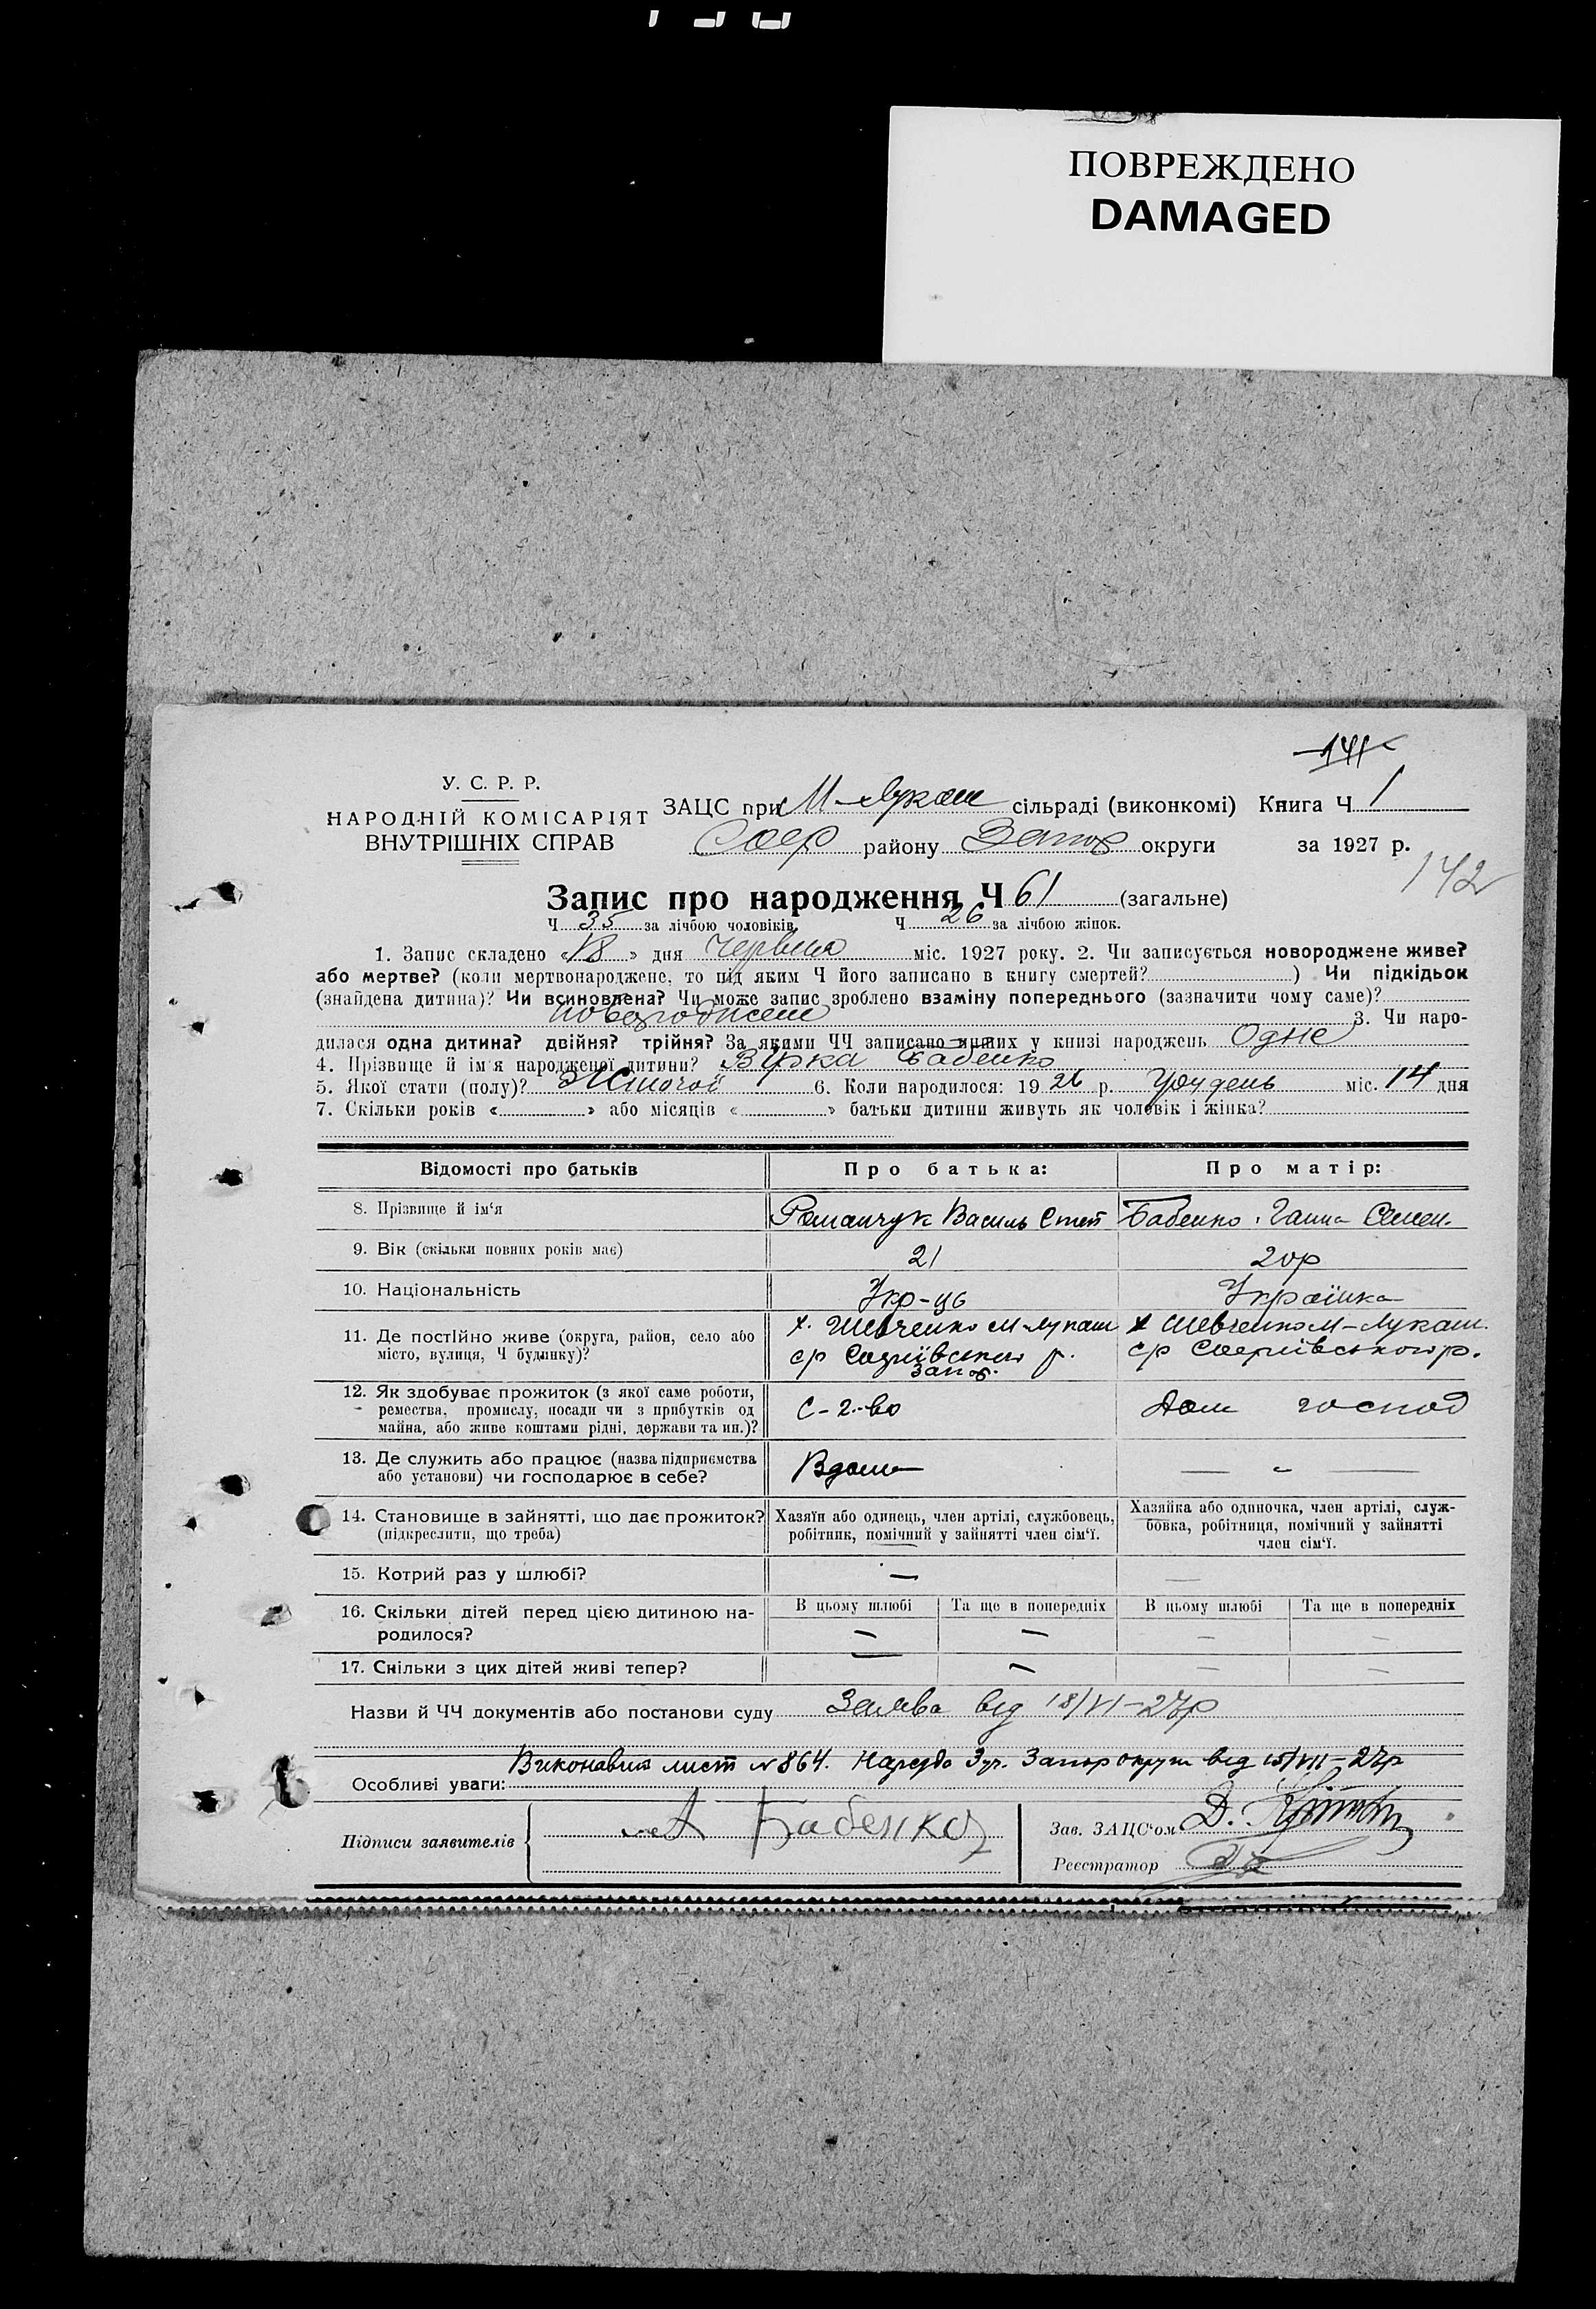 ПОВРЕЖДЕНО
DAMAGED
141
У. С. Р. Р.
НАРОДНІЙ КОМІСАРІЯТ
ВНУТРІШНІХ СПРАВ
ЗАЦС при М-Лукаш сільраді (виконкомі) Книга Ч 1
району Запор округи за 1927 р.
142
Запис про народження Ч 61 (загальне)
Ч 35 за лічбою чоловіків. Ч 26 за лічбою жінок.
1. Запис складено «18» дня Червня міс. 1927 року. 2. Чи записується новороджене живе?
або мертве? (коли мертвонароджене, то під яким Ч його записано в книгу смертей? ) Чи підкідьок
(знайдена дитина)? Чи всиновлена? Чи може запис зроблено взаміну попереднього (зазначити чому саме)?
3. Чи наро-
дилася одна дитина? двійня? трійня? За якими ЧЧ записано инших у книзі народжень Одне
4. Прізвище й ім'я народженої дитини? Вірка Бабенко
5. Якої стати (полу)? Жіночої 6. Коли народилося: 1926 р. Грудень міс. 14 дня
7. Скільки років « » або місяців « » батьки дитини живуть як чоловік і жінка?
Відомості про батьків Про батька: Про матір:
8. Прізвище й ім'я Романчук Василь Степ Бабенко Ганна Семен.
9. Вік (скільки повних років має) 21 20р
10. Національність Укр-ць Українка
11. Де постійно живе (округа, район, село або
місто, вулиця, Ч будинку)?
х. Шевченко М-Лукаш х Шевченко М-Лукаш.
с/р Софіївського р. с/р Софіївського р.
Запор.
12. Як здобуває прожиток (з якої саме роботи,
ремества, промислу, посади чи з прибутків од
майна, або живе коштами рідні, держави та ин.)?
С-г-во Дом господ
13. Де служить або працює (назва підприємства
або установи) чи господарює в себе?
Вдома — „ —
14. Становище в зайнятті, що дає прожиток?
(підкреслити, що треба)
Хазяїн або одинець, член артілі, службовець,
робітник, помічний у зайнятті член сім'ї.
Хазяйка або одиночка, член артілі, служ-
бовка, робітниця, помічний у зайнятті
член сім'ї.
15. Котрий раз у шлюбі? — —
16. Скільки дітей перед цією дитиною на-
родилося?
В цьому шлюбі Та ще в попередніх В цьому шлюбі Та ще в попередніх
— — — —
17. Скільки з цих дітей живі тепер? — — — —
Назви й ЧЧ документів або постанови суду Заява від 18/VI-27р
Виконавчий лист №864. Нарсуда Запор округи від 15/VII-27р
Особливі уваги:
Підписи заявителів Бабенко
Зав. ЗАЦС'ом Д.
Реєстратор